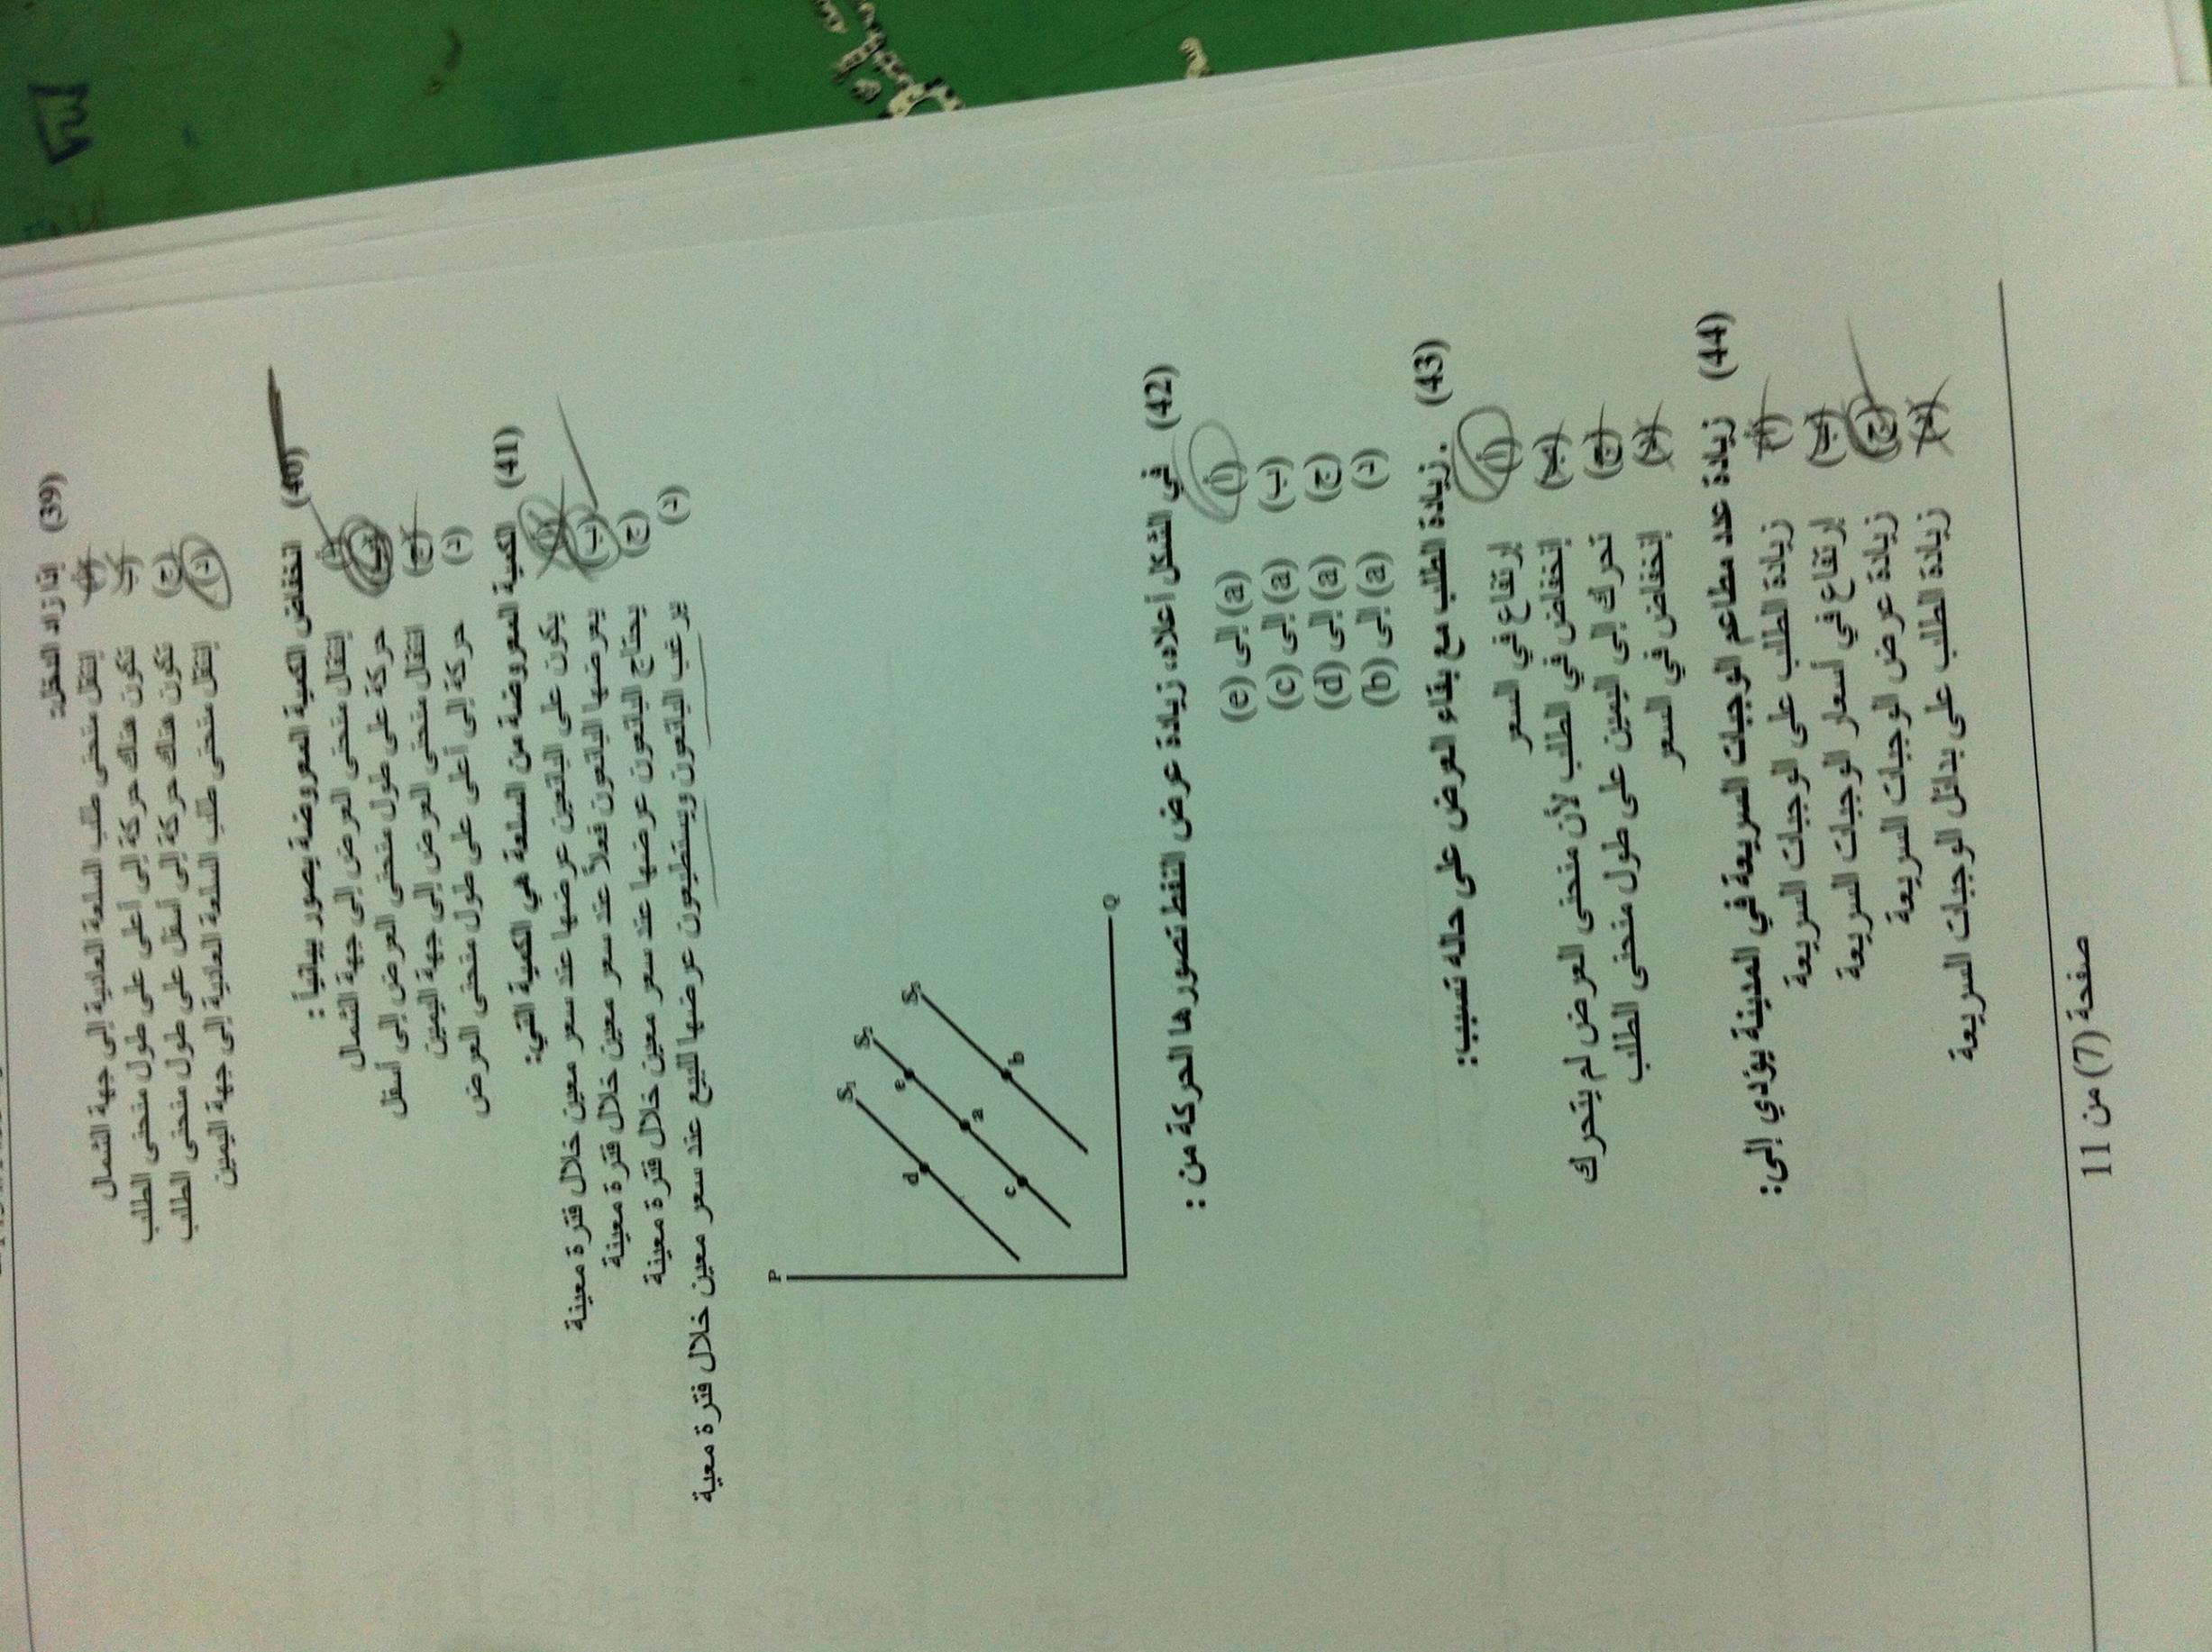 (39) إذا زاد الدخل:
(أ) ينتقل منحنى طلب السلعة العادية إلى جهة الشمال
(ب) تكون هناك حركة إلى أعلى على طول منحنى الطلب
(ج) تكون هناك حركة إلى أسفل على طول منحنى الطلب
(د) ينتقل منحنى طلب السلعة العادية إلى جهة اليمين
(40) انخفاض الكمية المعروضة يصور بيانياً :
(أ) إنتقال منحنى العرض إلى جهة الشمال
(ب) حركة على طول منحنى العرض إلى أسفل
(ج) إنتقال منحنى العرض إلى جهة اليمين
(د) حركة إلى أعلى على طول منحنى العرض
(41) الكمية المعروضة من السلعة هي الكمية التي:
(أ) يكون على البائعين عرضها عند سعر معين خلال فترة معينة
(ب) يعرضها البائعون فعلاً عند سعر معين خلال فترة معينة
(ج) يحتاج البائعون عرضها عند سعر معين خلال فترة معينة
(د) يرغب البائعون ويستطيعون عرضها للبيع عند سعر معين خلال فترة معية
P
S1
S2
S3
d
e
a
c
b
Q
(42) في الشكل أعلاه، زيادة عرض النفط تصورها الحركة من :
(أ) (e) إلى (a)
(ب) (c) إلى (a)
(ج) (d) إلى (a)
(د) (b) إلى (a)
(43) .زيادة الطلب مع بقاء العرض على حاله تسبب:
(أ) إرتفاع في السعر
(ب) إنخفاض في الطلب لأن منحنى العرض لم يتحرك
(ج) تحرك إلى اليمين على طول منحنى الطلب
(د) إنخفاض في السعر
(44) زيادة عدد مطاعم الوجبات السريعة في المدينة يؤدي إلى:
(أ) زيادة الطلب على الوجبات السريعة
(ب) إرتفاع في أسعار الوجبات السريعة
(ج) زيادة عرض الوجبات السريعة
(د) زيادة الطلب على بدائل الوجبات السريعة
صفحة (7) من 11